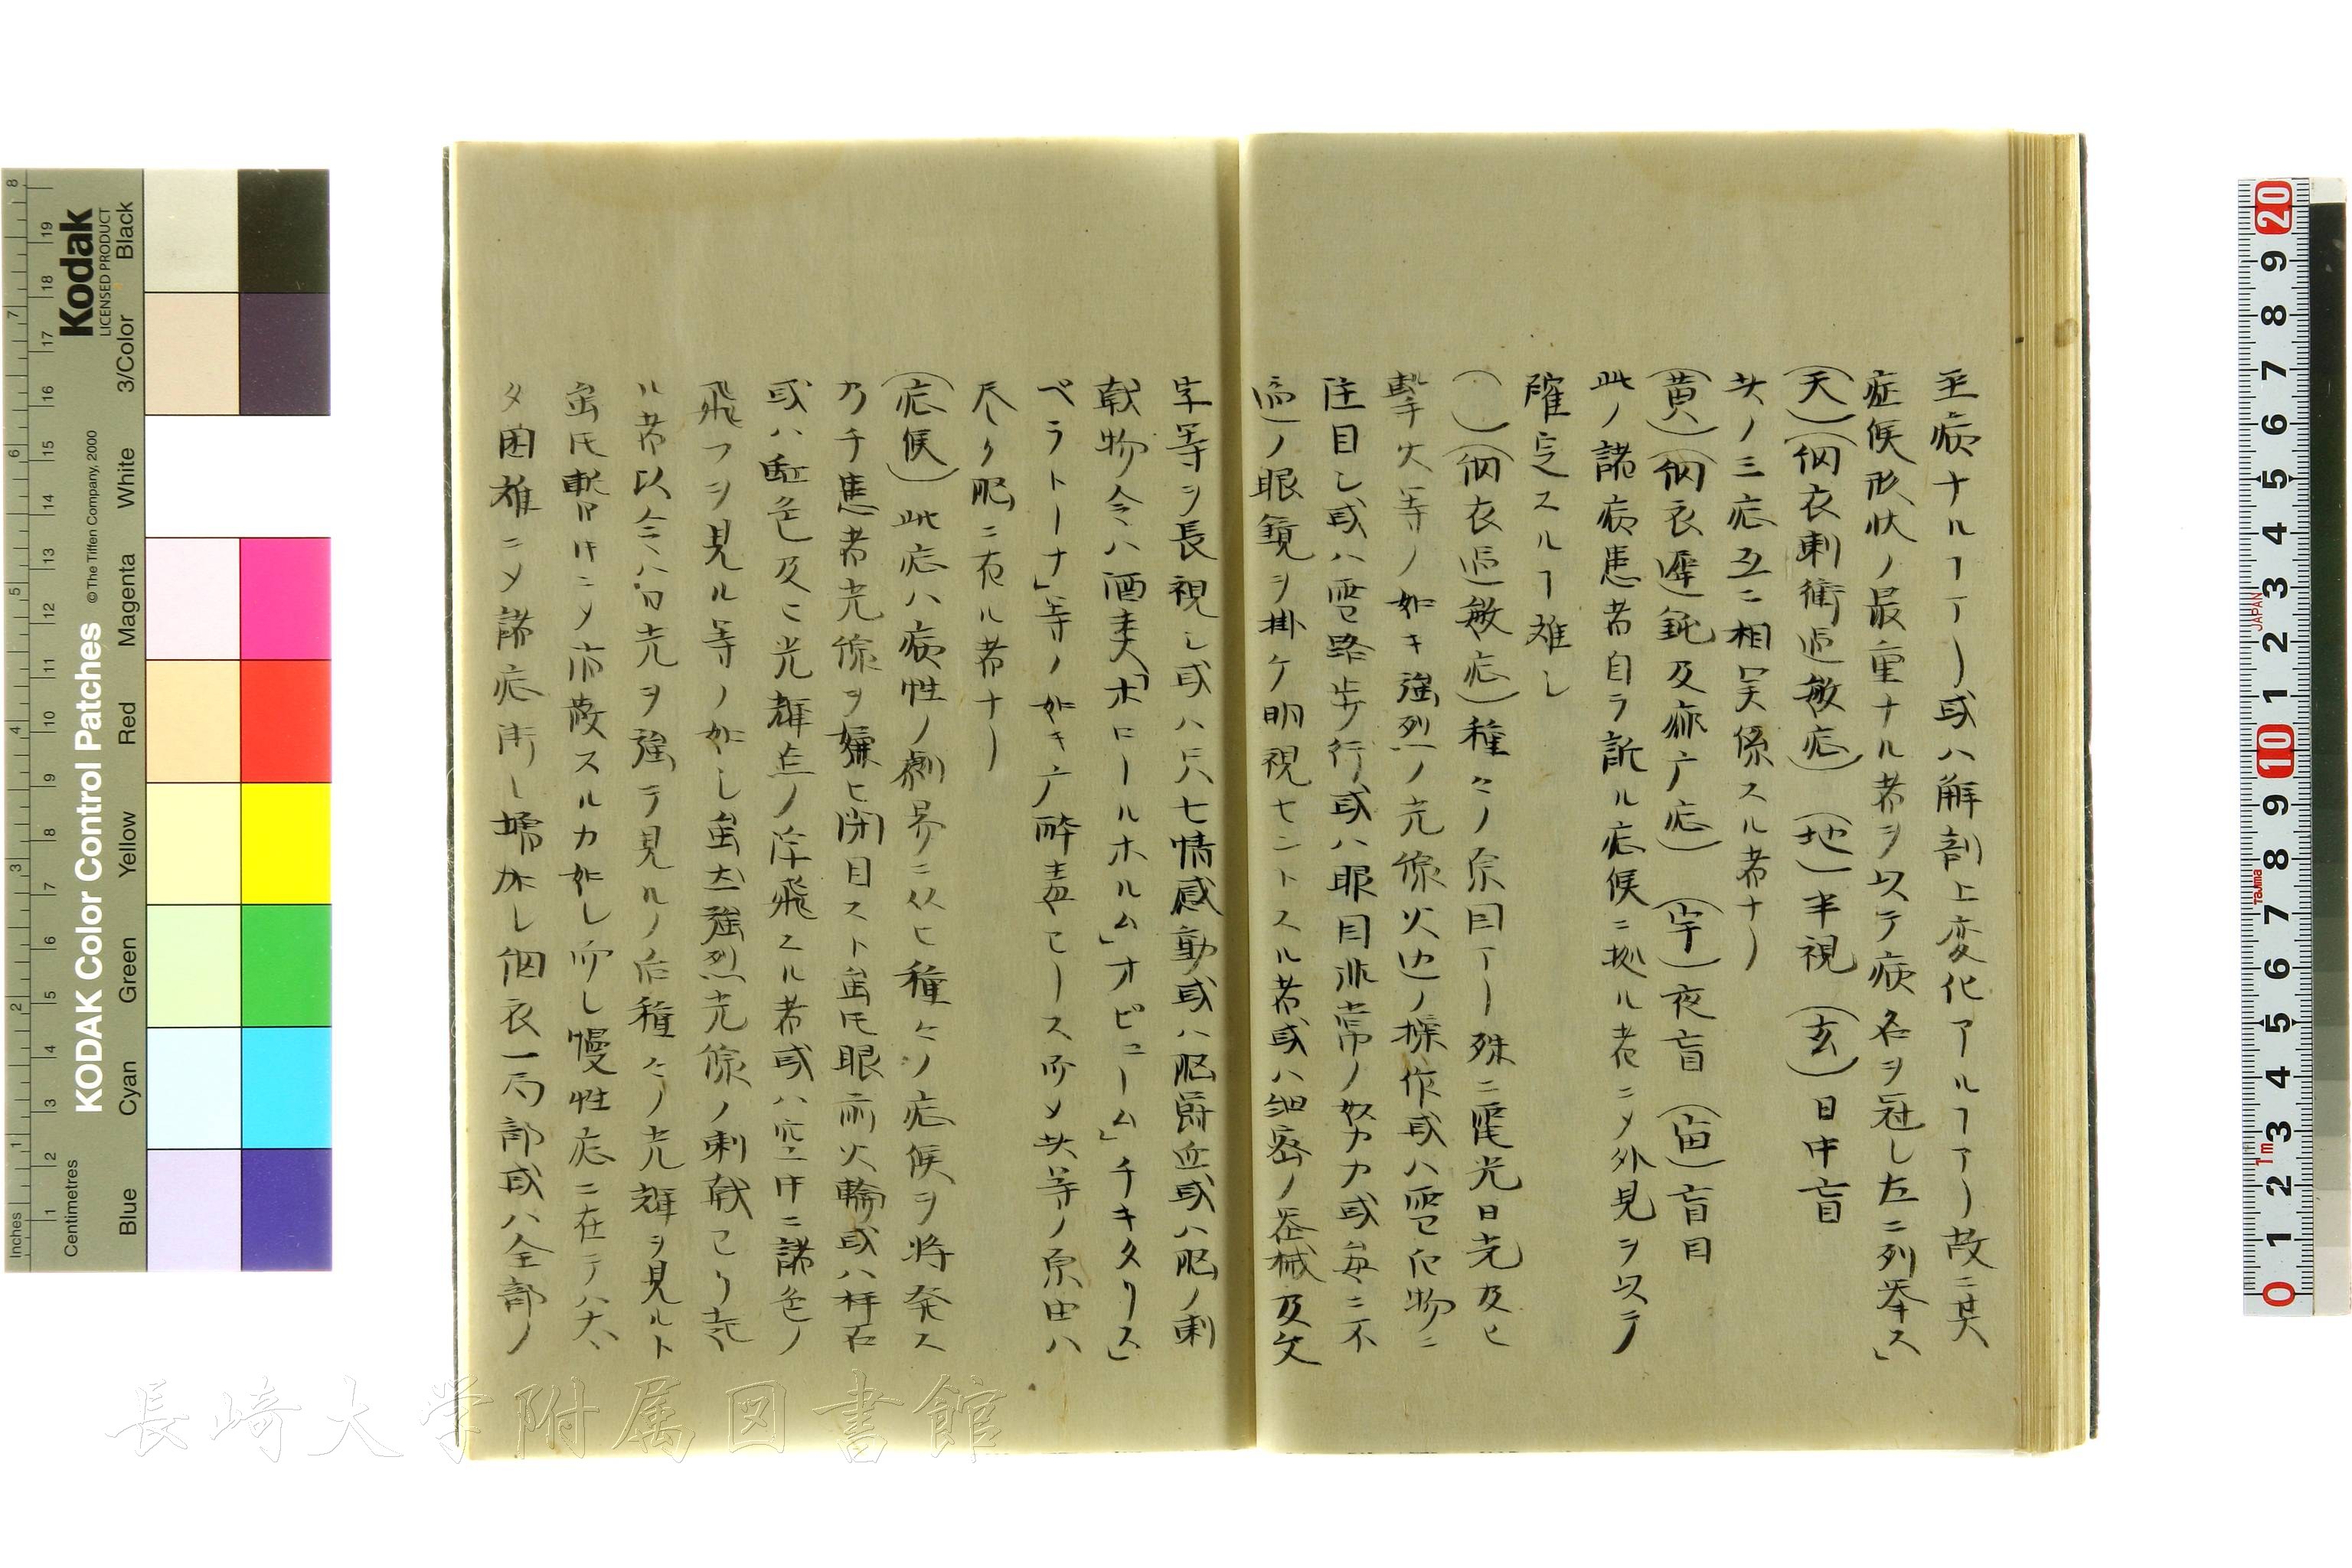 至病ナルヿアリ或ハ解剖上変化アルヿアリ故ニ其
症候形状ノ最重ナル者ヲ以テ病名ヲ冠し左ニ列挙ス」
(天)(網衣刺衝過敏症) (地)半視 (玄)日中盲
共ノ三症互ニ相関係スル者ナリ
(黄)(網衣遅鈍及麻痺症) (宇)夜盲 (宙)盲目
此ノ諸病患者自ラ訴ル症候ニ拠ル者ニ〆外見ヲ以テ
確定スルヿ難し
( )(網衣過敏症)種々ノ原因アリ殊ニ電光日光及ヒ
撃火等ノ如キ強烈ノ光線火辺ノ操作或ハ雪白物ニ
注目し或ハ雪路歩行或ハ眼目非常ノ努力或毎ニ不
適ノ眼鏡ヲ掛ケ明視セントスル者或ハ細密ノ器械及文
字等ヲ長視し或ハ尺七情感動或ハ脳欝血或ハ脳ノ刺
戟物令ハ酒麦「ホロールホルム」オピユーム」チキタリス」
ベラトーナ」等ノ如キ广酔毒セース所〆共等ノ原由ハ
尽ク脳ニ在ル者ナリ
(症候)此症ハ病性ノ劇易ニ从ヒ種々ノ症候ヲ将発ス
乃チ患者光線ヲ嫌ヒ閉目スト虽氏眼前火輪或ハ
或ハ虹色及ヒ光輝点ノ浮飛スル者或ハ空中ニ諸色ノ
飛フヲ見ル等ノ如し虽モ強烈光線ノ刺戟
ル者以令ハ日光ヲ強テ見ルノ后種々ノ光輝ヲ見ルト
虽氏暫時ニ〆消散スルカ如し所し慢性症ニ在テハ大
タ困難ニ〆諸症漸し増加し網衣一局部或ハ全部ノ
KODAK Color Control Patches
© The Tiffen Company, 2000
Kodak
LICENSED PRODUCT
Inches
Centimetres
Blue Cyan Green Yellow Red Magenta White 3/Color Black
長崎大学附属図書館
JAPAN
Tajima
1m